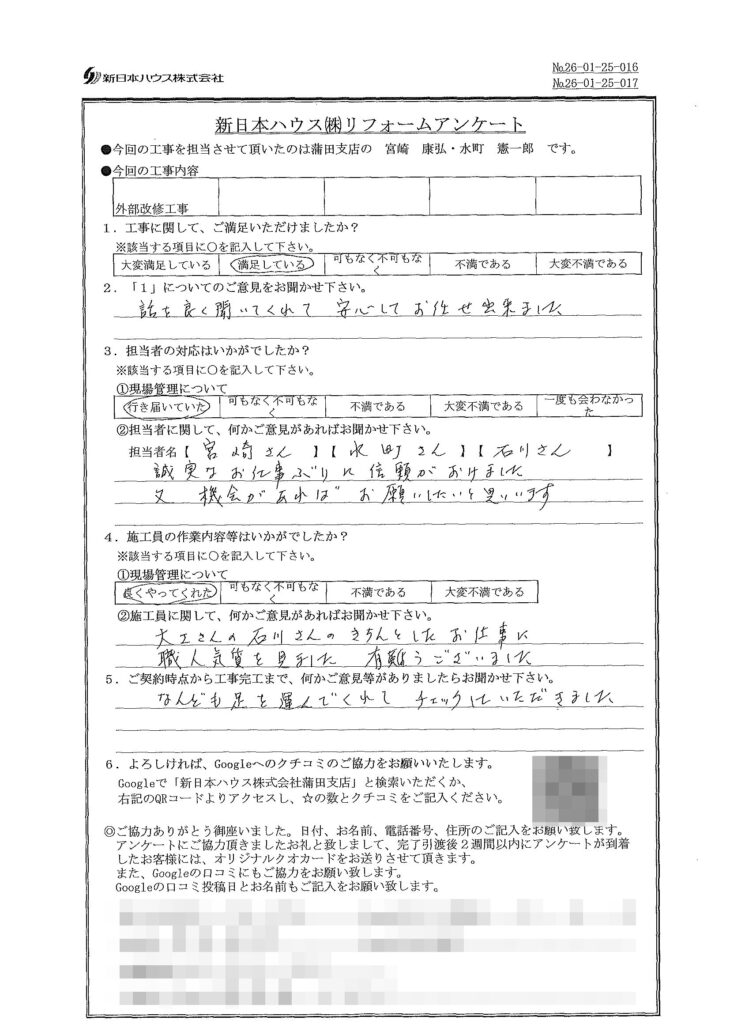 新日本ハウス株式会社
№26-01-25-016
№26-01-25-017
新日本ハウス㈱リフォームアンケート
●今回の工事を担当させて頂いたのは蒲田支店の 宮崎 康弘・水町 憲一郎 です。
●今回の工事内容
外部改修工事
1．工事に関して、ご満足いただけましたか？
※該当する項目に○を記入して下さい。
大変満足している 満足している 可もなく不可もなく 不満である 大変不満である
2．「1」についてのご意見をお聞かせ下さい。
話を良く聞いてくれて 安心してお任せ出来ました
3．担当者の対応はいかがでしたか？
※該当する項目に○を記入して下さい。
①現場管理について
行き届いていた 可もなく不可もなく 不満である 大変不満である 一度も会わなかった
②担当者に関して、何かご意見があればお聞かせ下さい。
担当者名【 宮崎さん 】【 水町さん 】【 石川さん 】
誠実なお仕事ぶりに信頼がおけました
又 機会があれば お願いしたいと思いいます
4．施工員の作業内容等はいかがでしたか？
※該当する項目に○を記入して下さい。
①現場管理について
良くやってくれた 可もなく不可もなく 不満である 大変不満である
②施工員に関して、何かご意見があればお聞かせ下さい。
大工さんの石川さんのきちんとしたお仕事に
職人気質を見ました 有難うございました
5．ご契約時点から工事完工まで、何かご意見等がありましたらお聞かせ下さい。
なんども足を運んでくれて チェックしていただきました
6．よろしければ、Googleへのクチコミのご協力をお願いいたします。
Googleで「新日本ハウス株式会社蒲田支店」と検索いただくか、
右記のQRコードよりアクセスし、☆の数とクチコミをご記入ください。
◎ご協力ありがとう御座いました。日付、お名前、電話番号、住所のご記入をお願い致します。
アンケートにご協力頂きましたお礼と致しまして、完了引渡後2週間以内にアンケートが到着
したお客様には、オリジナルクオカードをお送りさせて頂きます。
また、Googleの口コミにもご協力をお願い致します。
Googleの口コミ投稿日とお名前もご記入をお願い致します。